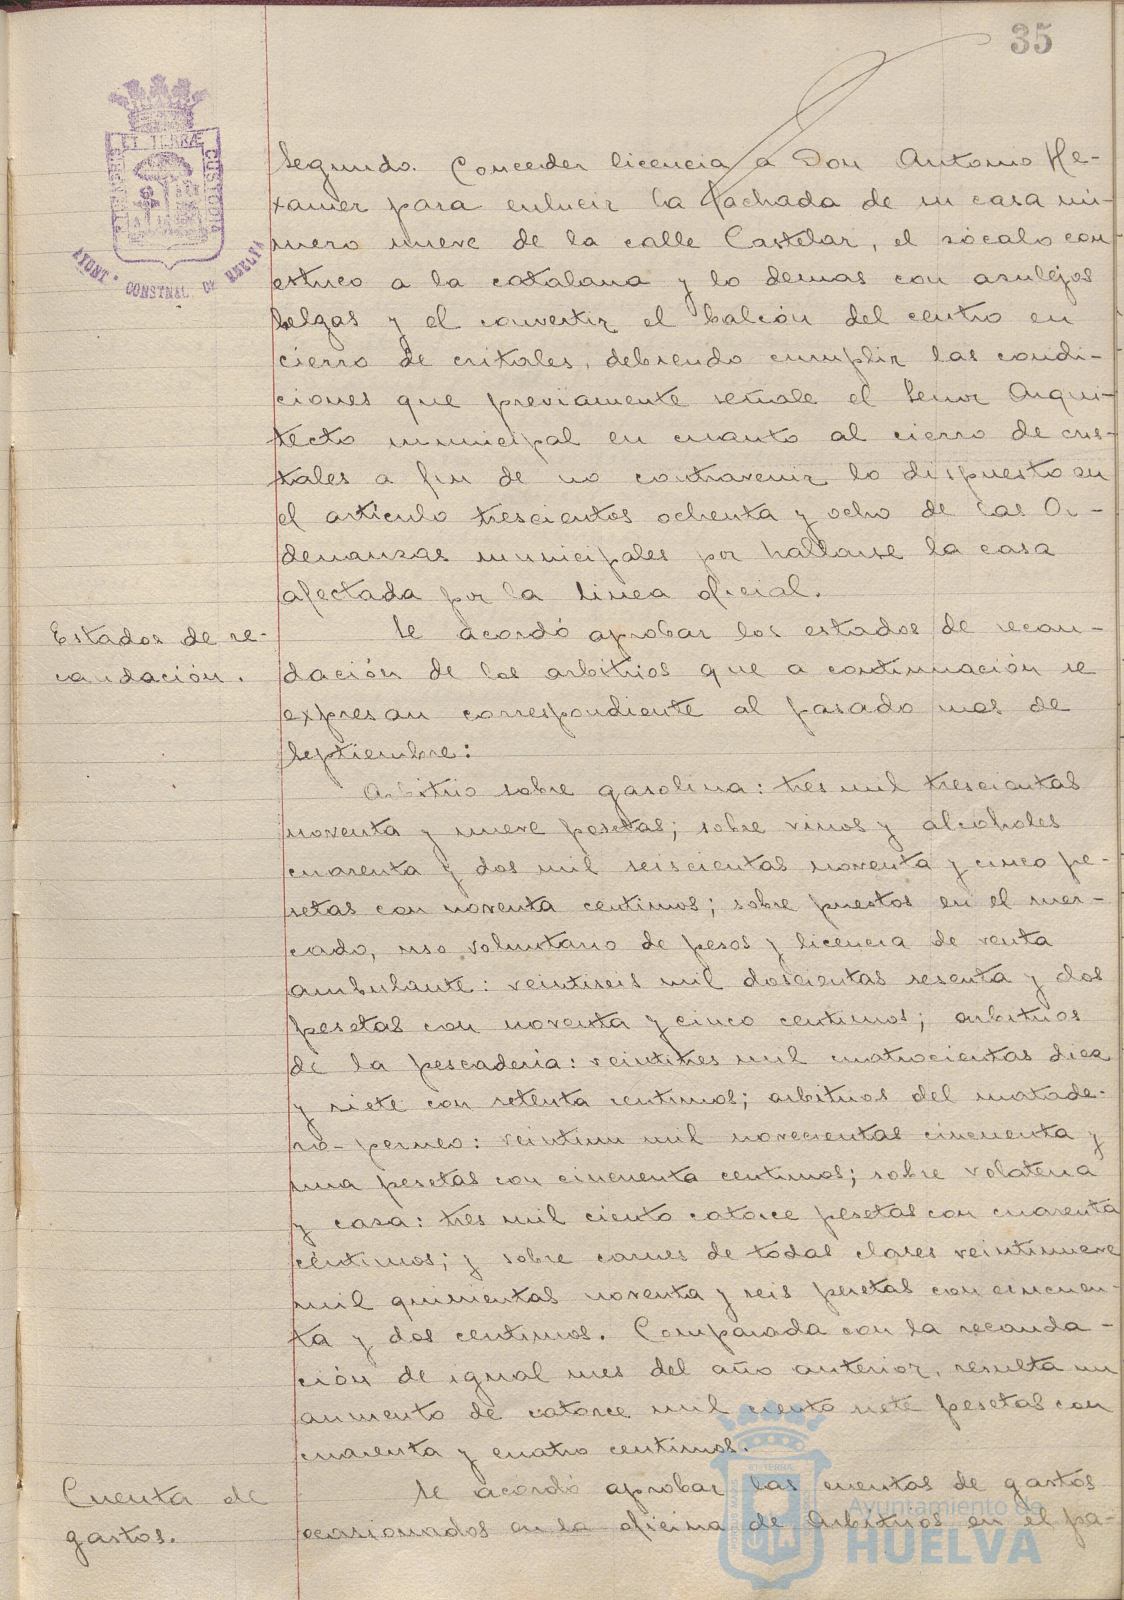 35
PORTUS MARIS ET TERRÆ CUSTODIA
AYUNT. CONSTNAL. DE HUELVA
Segundo. Conceder licencia a Don Antonio He-
xamer para enlucir la fachada de su casa nú-
mero nueve de la calle Castelar, el zócalo con
estuco a la catalana y lo demas con azulejos
belgas y el convertir el balcón del centro en
cierro de critales, debiendo cumplir las condi-
ciones que previamente señale el Señor Arqui-
tecto municipal en cuanto al cierro de cris-
tales a fin de no contravenir lo dispuesto en
el artículo trescientos ochenta y ocho de las Or-
denanzas municipales por hallarse la casa
afectada por la linea oficial.
Estados de re-
caudación.
Se acordó aprobar los estados de recau-
dación de los arbitrios que a continuación se
expresan correspondiente al pasado mes de
Septiembre:
Arbitrio sobre gasolina: tres mil trescientas
noventa y nueve pesetas; sobre vinos y alcoholes
cuarenta y dos mil seiscientas noventa y cinco pe-
setas con noventa centimos; sobre puestos en el mer-
cado, uso voluntario de pesos y licencia de venta
ambulante: veintiseis mil doscientas sesenta y dos
pesetas con noventa y cinco centimos; arbitrios
de la pescadería: veintitres mil cuatrocientas diez
y siete con setenta centimos; arbitrios del matade-
ro-perneo: veintiun mil novecientas cincuenta y
una pesetas con cincuenta centimos; sobre volateria
y caza: tres mil ciento catorce pesetas con cuarenta
céntimos; y sobre carnes de todas clases veintinueve
mil quinientas noventa y seis pesetas con cincuen-
ta y dos centimos. Comparada con la recauda-
ción de igual mes del año anterior, resulta un
aumento de catorce mil ciento siete pesetas con
cuarenta y cuatro centimos.
Cuenta de
gastos.
Se acordó aprobar las cuentas de gastos
ocasionados en la oficina de Arbitrios en el pa-
Ayuntamiento de
HUELVA